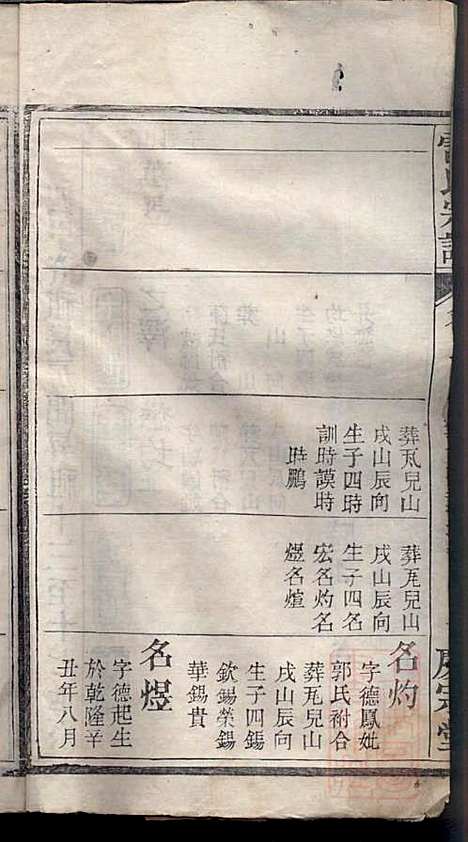 葬瓦兒山
戌山辰向
生子四時
訓時謨時
時鵬
葬瓦兒山
戌山辰向
生子四名
宏名灼名
煜名煊
名灼
字德鳳妣
郭氏祔合
葬瓦兒山
戌山辰向
生子四錫
欽錫榮錫
華錫貴
名煜
字德起生
於乾隆辛
丑年八月